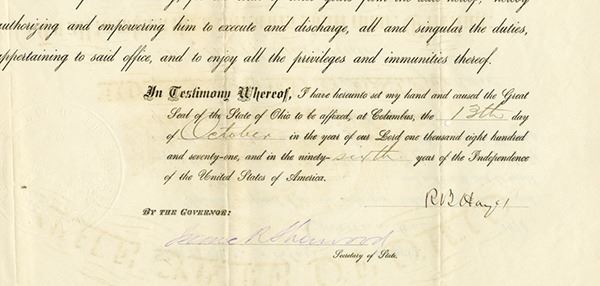 authorizing and empowering him to execute and discharge, all and singular the duties,
appertaining to said office, and to enjoy all the privileges and immunities thereof.
In Testimony Whereof, I have hereunto set my hand and caused the Great
Seal of the State of Ohio to be affixed, at Columbus, the 13th day
of October in the year of our Lord one thousand eight hundred
and seventy-one, and in the ninety-sixth year of the Independence
of the United States of America.
R B Hayes
BY THE GOVERNOR:
Isaac R Sherwood
Secretary of State.